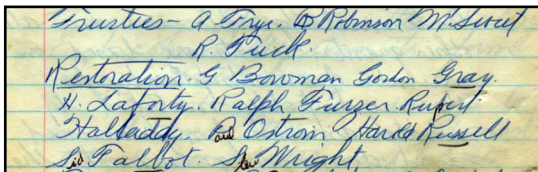 Trusties - A Frye. B Robinson M. Sweet
R. Tuck.
Restoration. G Bowman Gordon Gray.
H. Laforty. Ralph Furzer. Rupert
Halladay. Ostrom Harold Russell
Sid Talbot. Stew Wright